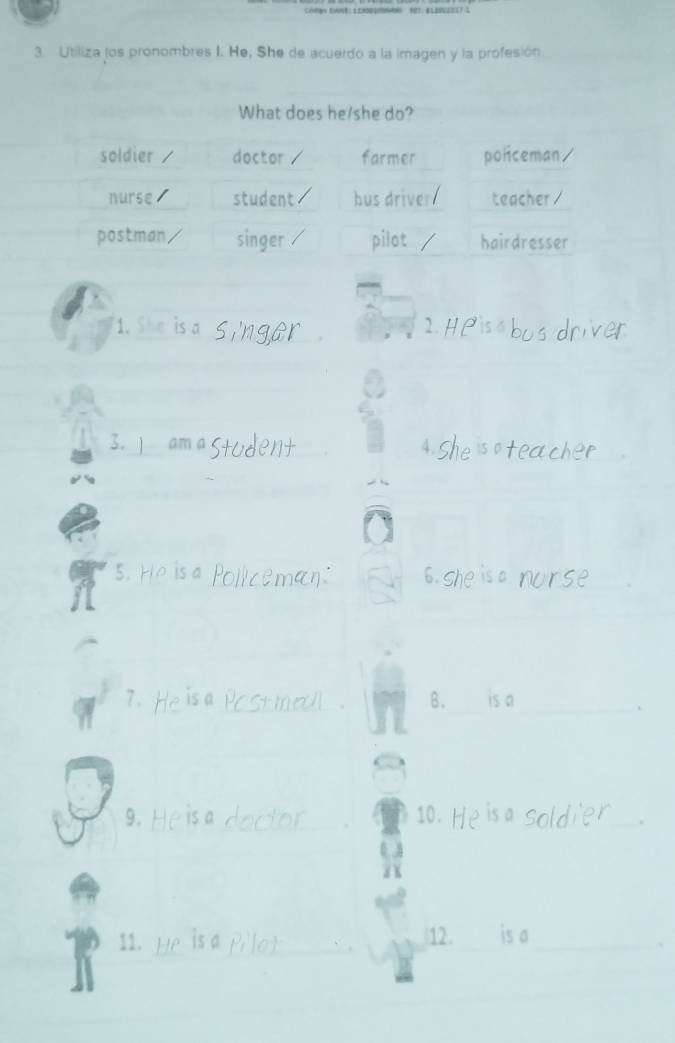 3. Utiliza los pronombres I. He, She de acuerdo a la imagen y la profesión.
What does he/she do?
soldier / doctor / farmer policeman /
nurse / student / bus driver / teacher /
postman / singer / pilot / hairdresser
1. She is a singer . 2. He is a bus driver
3. I am a student . 4. She is a teacher .
5. He is a Policeman. 6. she is a nurse .
7. He is a Postman . 8. is a .
9. He is a doctor . 10. He is a soldier .
11. He is a Pilot . 12. is a .